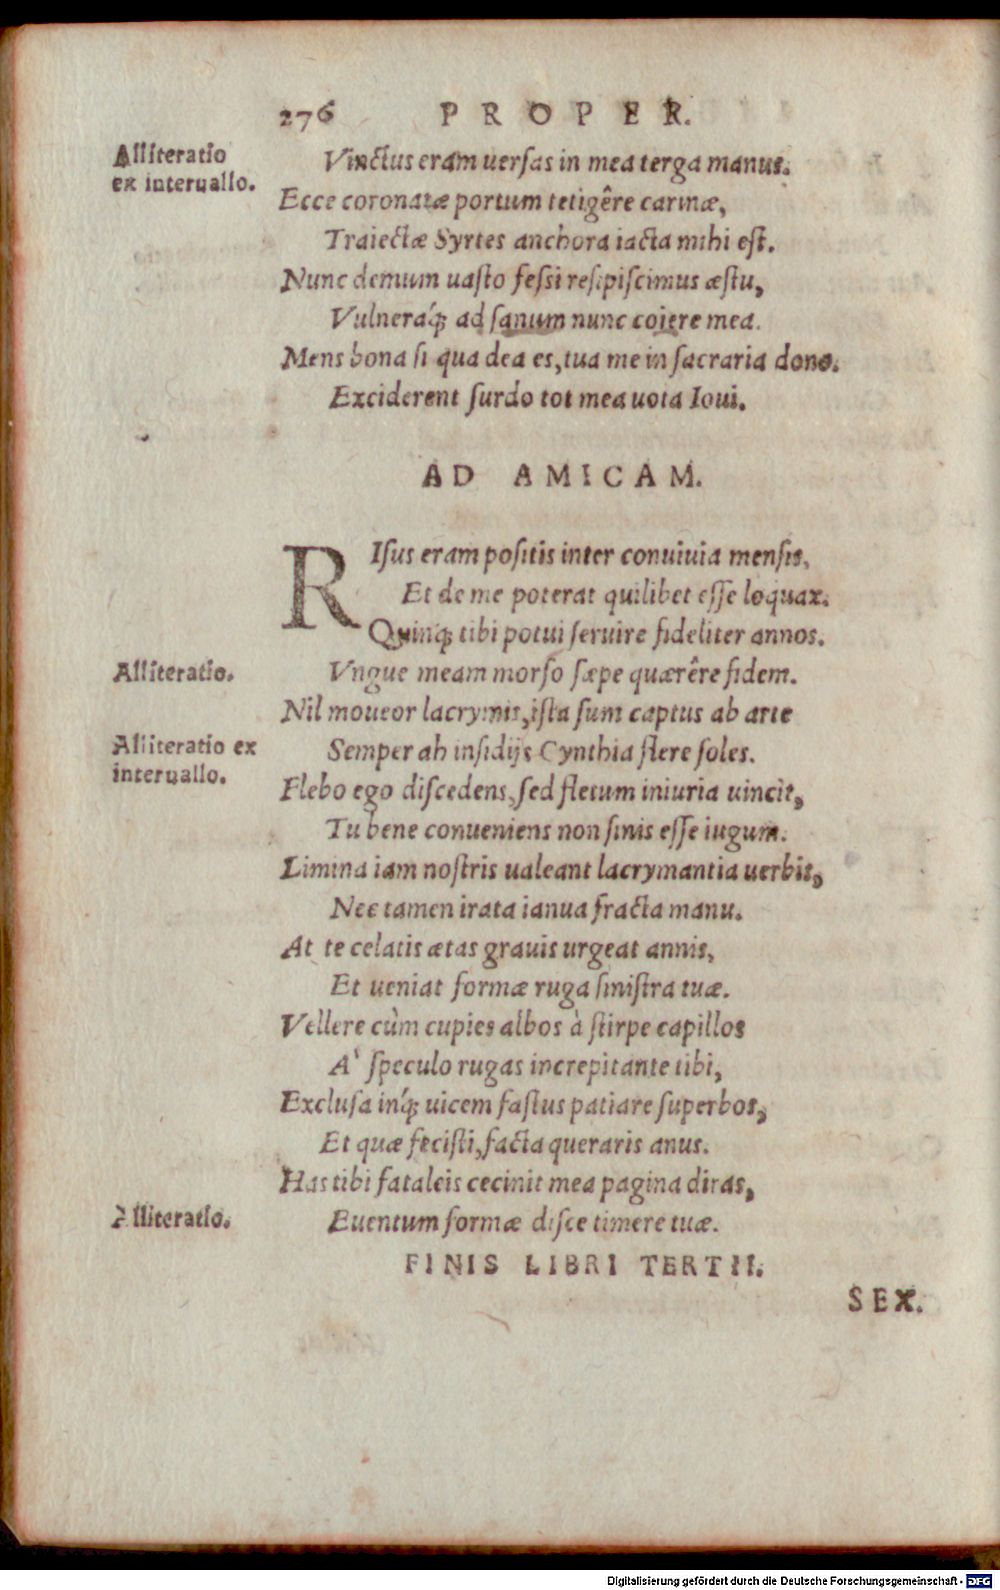 276 PROPER.
Alliteratio
ex interuallo.
Vinctus eram uersas in mea terga manus.
Ecce coronatæ portum tetigêre carinæ,
Traiectæ Syrtes anchora iacta mihi est.
Nunc demum uasto fessi resipiscimus æstu,
Vulneraq́; ad sanum nunc coiere mea.
Mens bona si qua dea es, tua me in sacraria dono.
Exciderent surdo tot mea uota Ioui.
AD AMICAM.
RIsus eram positis inter conuiuia mensis,
Et de me poterat quilibet esse loquax.
Quinq; tibi potui seruire fideliter annos.
Alliteratio.
Vngue meam morso sæpe quærêre fidem.
Nil moueor lacrymis, ista sum captus ab arte
Alliteratio ex
interuallo.
Semper ab insidijs Cynthia flere soles.
Flebo ego discedens, sed fletum iniuria uincit,
Tu bene conueniens non sinis esse iugum.
Limina iam nostris ualeant lacrymantia uerbis,
Nec tamen irata ianua fracta manu.
At te celatis ætas grauis urgeat annis,
Et ueniat formæ ruga sinistra tuæ.
Vellere cùm cupies albos à stirpe capillos
A' speculo rugas increpitante tibi,
Exclusa inq́; uicem fastus patiare superbos,
Et quæ fecisti, facta queraris anus.
Has tibi fataleis cecinit mea pagina diras,
Alliteratio.
Euentum formæ disce timere tuæ.
FINIS LIBRI TERTII.
SEX.
Digitalisierung gefördert durch die Deutsche Forschungsgemeinschaft - DFG